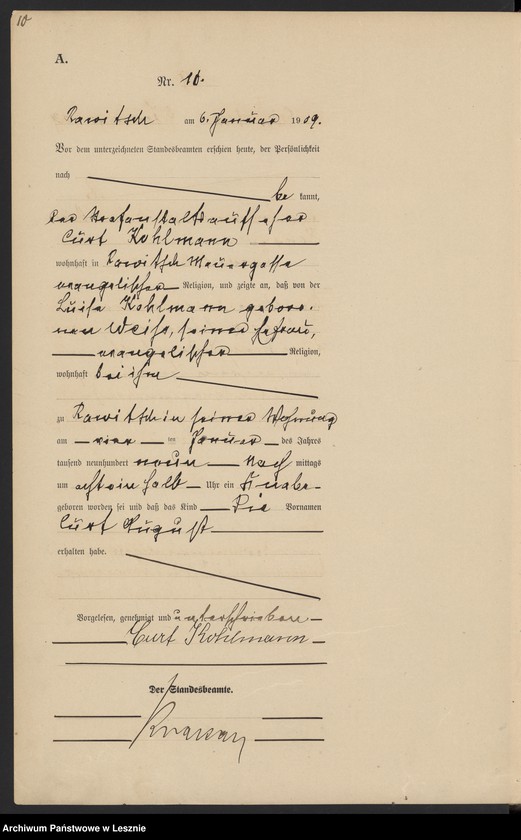 10
A.
Nr. 10.
Rawitsch am 6. Januar 1909.
Vor dem unterzeichneten Standesbeamten erschien heute, der Persönlichkeit
nach
be kannt,
der Strafanstaltsaufseher
Curt Kohlmann
wohnhaft in Rawitsch Mauergasse
evangelischer Religion, und zeigte an, daß von der
Luise Kohlmann gebore-
nen Weiß, seiner Ehefrau,
evangelischer Religion,
wohnhaft bei ihm
zu Rawitsch in seiner Wohnung
am vier ten Januar des Jahres
tausend neunhundert neun Nach mittags
um acht ein halb Uhr ein Knabe
geboren worden sei und daß das Kind die Vornamen
Curt August
erhalten habe.
Vorgelesen, genehmigt und unterschrieben
Curt Kohlmann
Der Standesbeamte.
Archiwum Państwowe w Lesznie